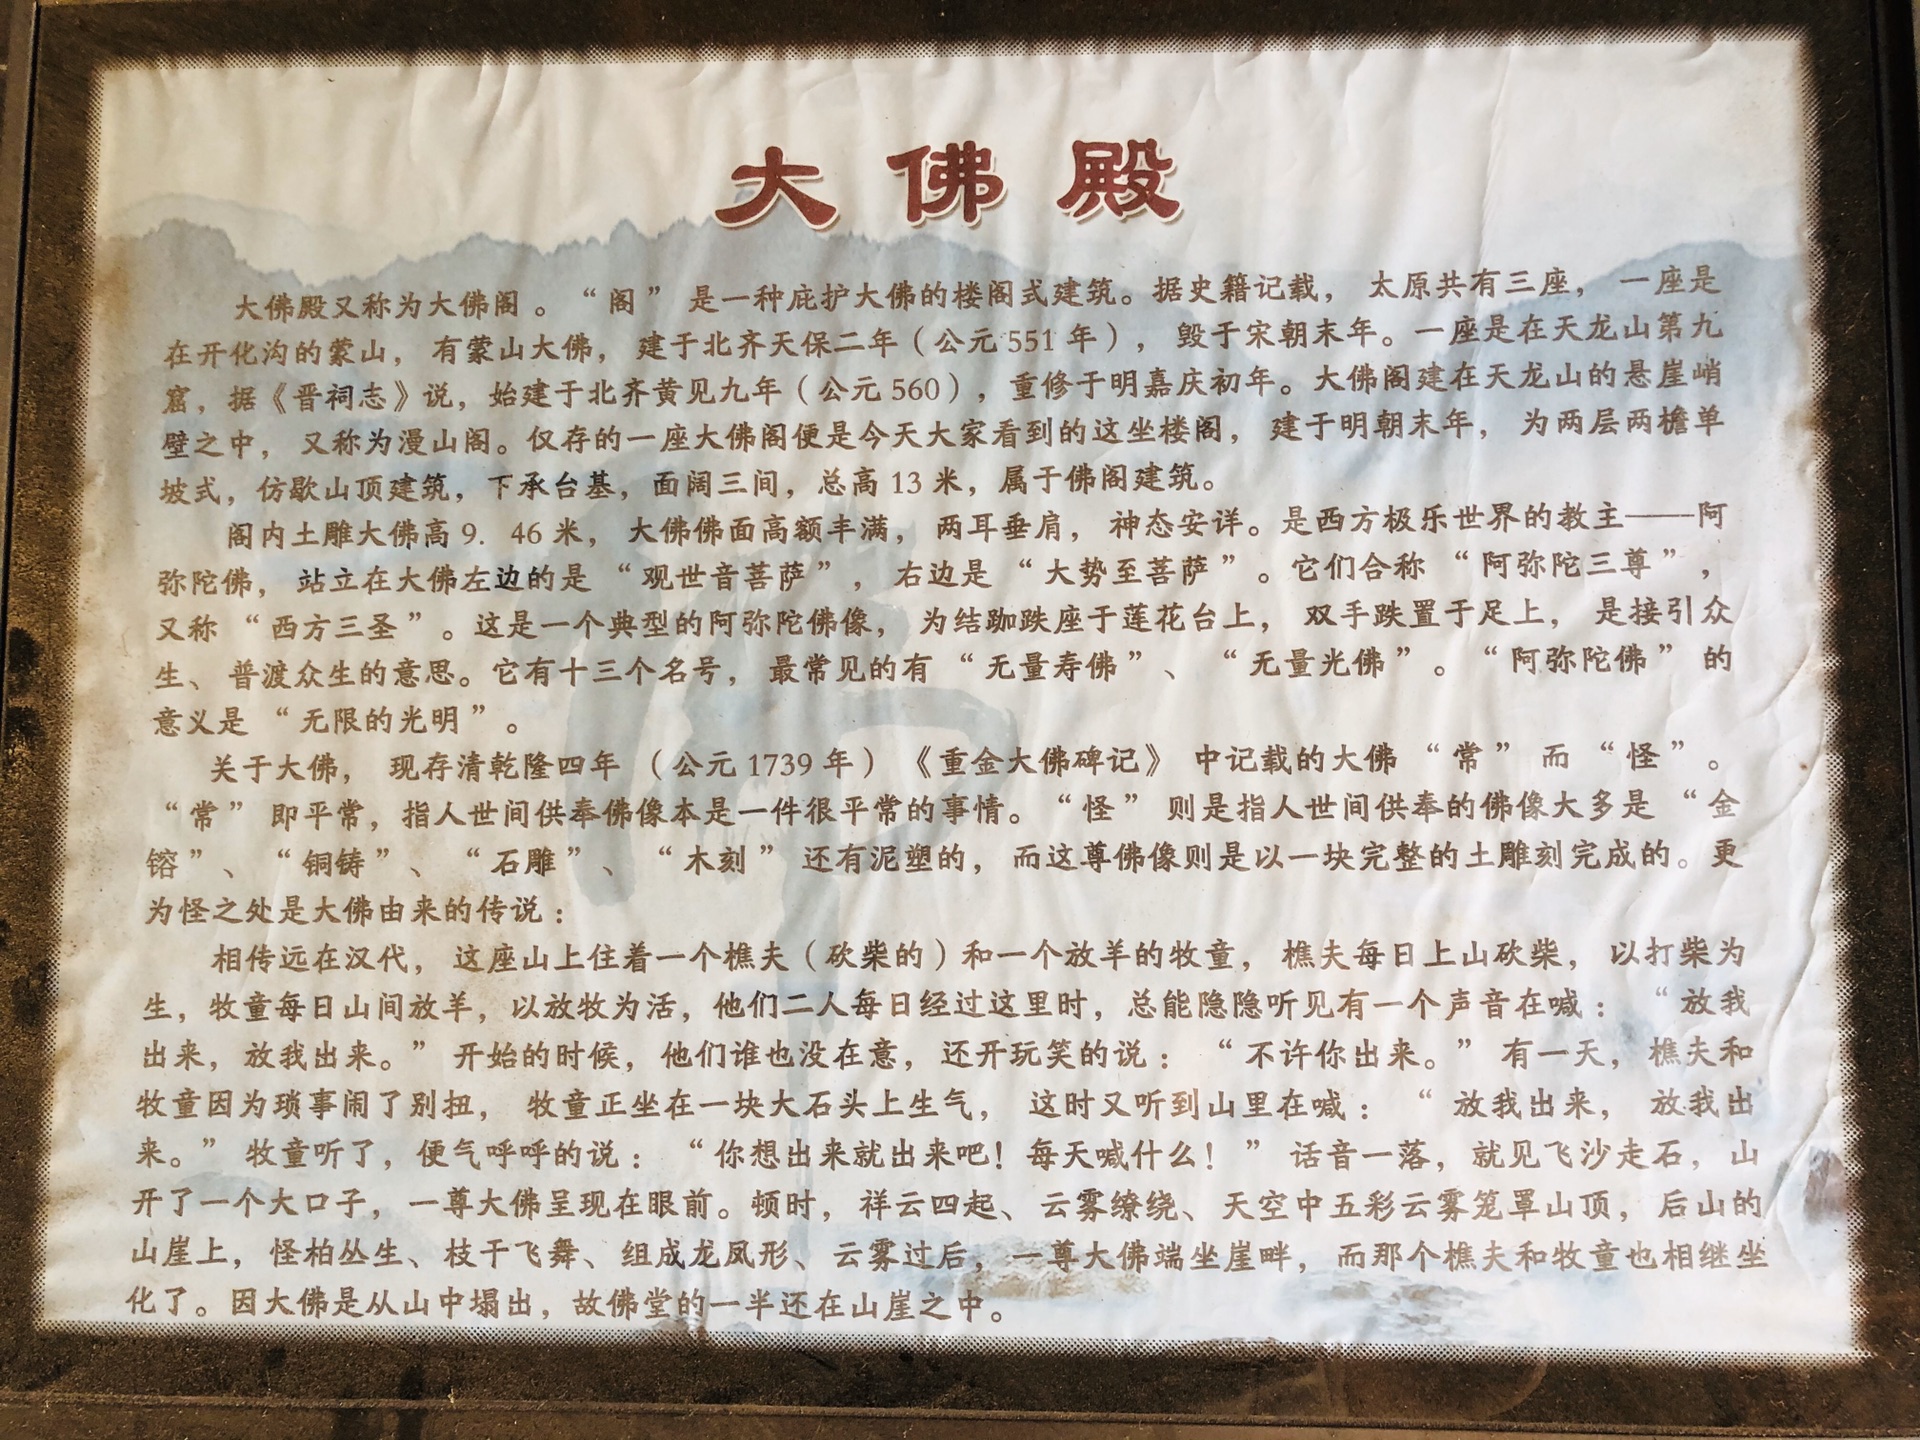 大佛殿
大佛殿又称为大佛阁。“阁”是一种庇护大佛的楼阁式建筑。据史籍记载，太原共有三座，一座是
在开化沟的蒙山，有蒙山大佛，建于北齐天保二年（公元551年），毁于宋朝末年。一座是在天龙山第九
窟，据《晋祠志》说，始建于北齐黄见九年（公元560），重修于明嘉庆初年。大佛阁建在天龙山的悬崖峭
壁之中，又称为漫山阁。仅存的一座大佛阁便是今天大家看到的这坐楼阁，建于明朝末年，为两层两檐单
坡式，仿歇山顶建筑，下承台基，面阔三间，总高13米，属于佛阁建筑。
阁内土雕大佛高9．46米，大佛佛面高额丰满，两耳垂肩，神态安详。是西方极乐世界的教主——阿
弥陀佛，站立在大佛左边的是“观世音菩萨”，右边是“大势至菩萨”。它们合称“阿弥陀三尊”，
又称“西方三圣”。这是一个典型的阿弥陀佛像，为结跏趺座于莲花台上，双手跌置于足上，是接引众
生、普渡众生的意思。它有十三个名号，最常见的有“无量寿佛”、“无量光佛”。“阿弥陀佛”的
意义是“无限的光明”。
关于大佛，现存清乾隆四年（公元1739年）《重金大佛碑记》中记载的大佛“常”而“怪”。
“常”即平常，指人世间供奉佛像本是一件很平常的事情。“怪”则是指人世间供奉的佛像大多是“金
镕”、“铜铸”、“石雕”、“木刻”还有泥塑的，而这尊佛像则是以一块完整的土雕刻完成的。更
为怪之处是大佛由来的传说：
相传远在汉代，这座山上住着一个樵夫（砍柴的）和一个放羊的牧童，樵夫每日上山砍柴，以打柴为
生，牧童每日山间放羊，以放牧为活，他们二人每日经过这里时，总能隐隐听见有一个声音在喊：“放我
出来，放我出来。”开始的时候，他们谁也没在意，还开玩笑的说：“不许你出来。”有一天，樵夫和
牧童因为琐事闹了别扭，牧童正坐在一块大石头上生气，这时又听到山里在喊：“放我出来，放我出
来。”牧童听了，便气呼呼的说：“你想出来就出来吧！每天喊什么！”话音一落，就见飞沙走石，山
开了一个大口子，一尊大佛呈现在眼前。顿时，祥云四起、云雾缭绕、天空中五彩云雾笼罩山顶，后山的
山崖上，怪柏丛生、枝干飞舞、组成龙凤形、云雾过后，一尊大佛端坐崖畔，而那个樵夫和牧童也相继坐
化了。因大佛是从山中塌出，故佛堂的一半还在山崖之中。